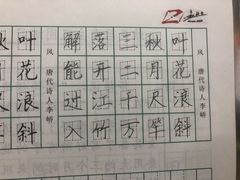 风
唐代诗人李峤
解落三秋叶
能开二月花
过江千尺浪
入竹万竿斜
风
唐代诗人李峤
叶
花
浪
斜